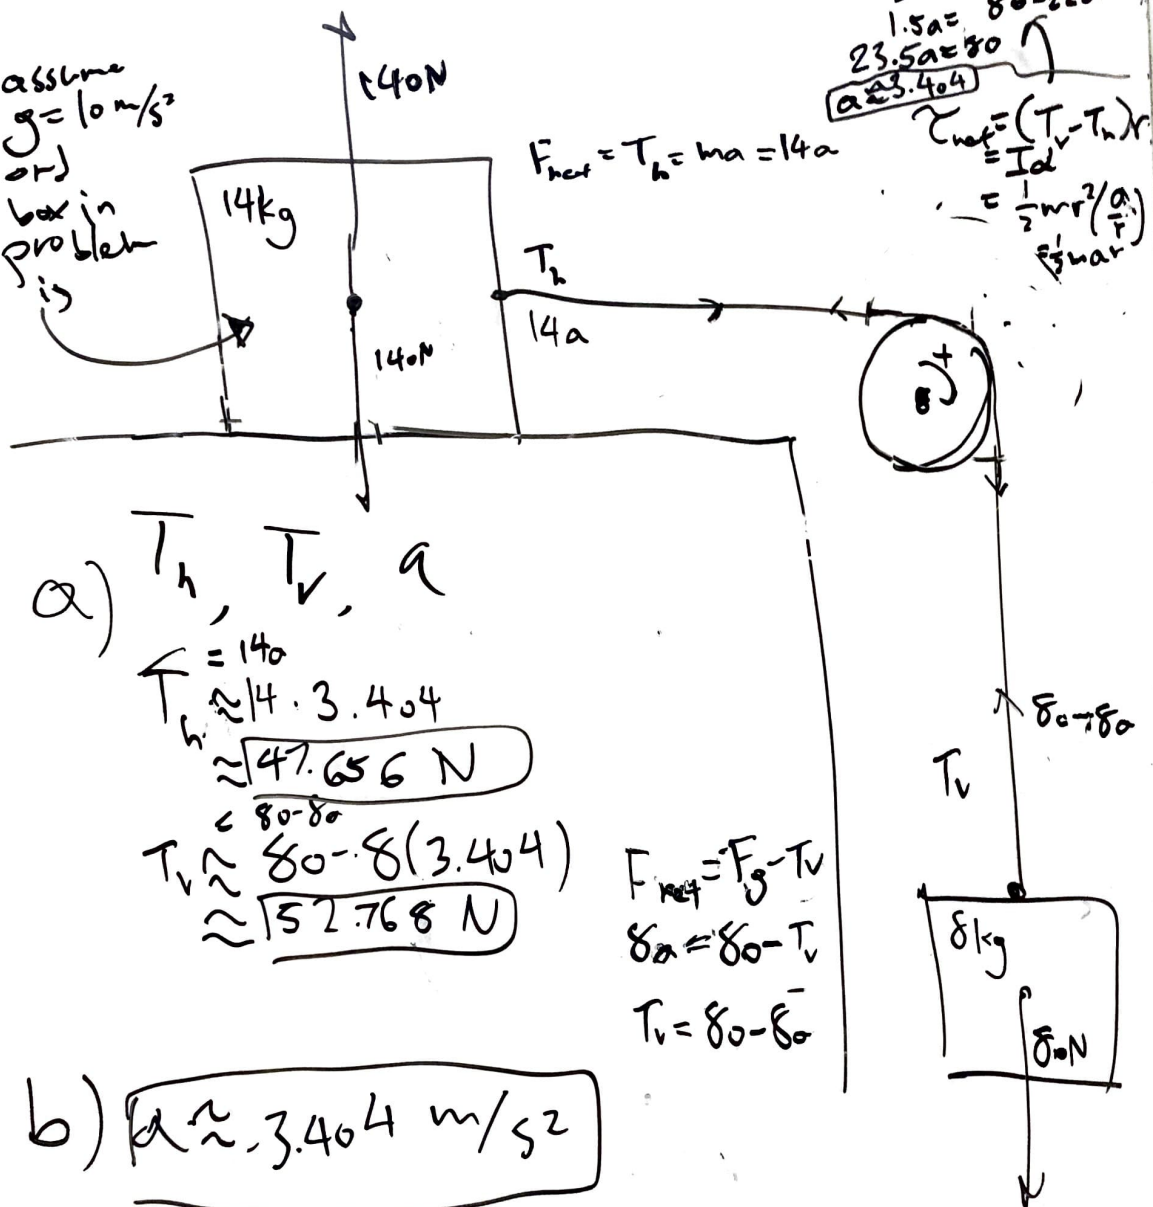 assume
g = 10 m/s²
and
box in
problem
is
140N
14kg
140N
F_net = T_h = ma = 14a
T_h
14a
1.5a =
23.5a = 80
a ≈ 3.404
τ_net = (T_v - T_h)r
= Iα
= 1/2 mr² (a/r)
+
a) T_h, T_v, a
T_h = 14a
≈ 14 · 3.404
≈ 47.656 N
= 80-8a
T_v ≈ 80-8(3.404)
≈ 52.768 N
b) a ≈ 3.404 m/s²
F_net = F_g - T_v
8a = 80 - T_v
T_v = 80-8a
80-8a
T_v
8kg
80N